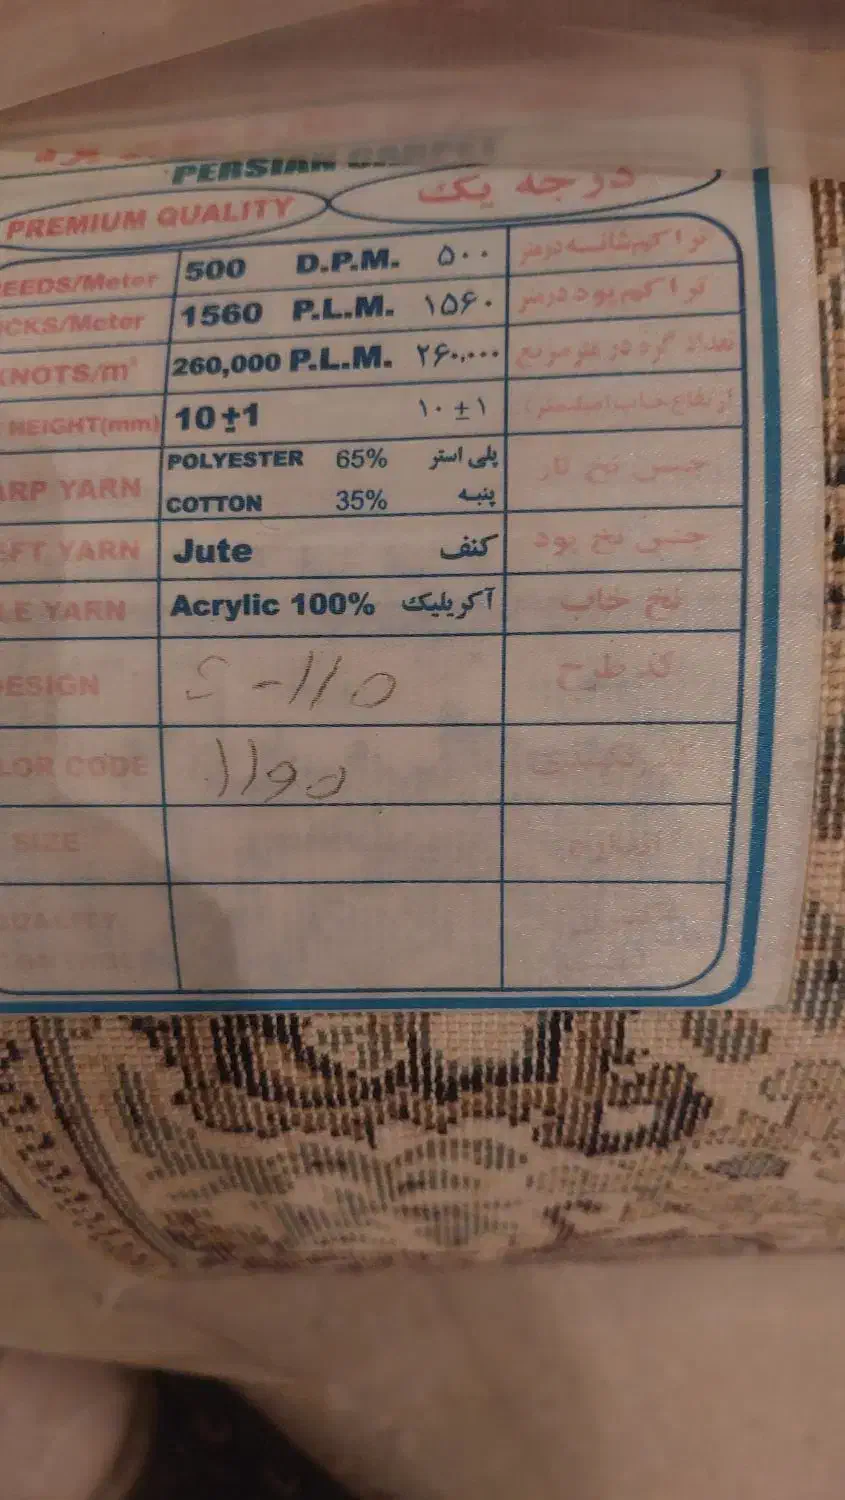 PERSIAN CARPET
PREMIUM QUALITY درجه یک
REEDS/Meter 500 D.P.M. ۵۰۰ تراکم شانه در متر
PICKS/Meter 1560 P.L.M. ۱۵۶۰ تراکم پود در متر
KNOTS/m² 260,000 P.L.M. ۲۶۰,۰۰۰ تعداد گره در متر مربع
HEIGHT(mm) 10±1 ۱۰±۱ ارتفاع خاب (میلیمتر)
WARP YARN POLYESTER 65% پلی استر جنس نخ تار
COTTON 35% پنبه
WEFT YARN Jute کنف جنس نخ پود
PILE YARN Acrylic 100% آکریلیک نخ خاب
DESIGN S-110 کد طرح
COLOR CODE
SIZE اندازه
QUALITY